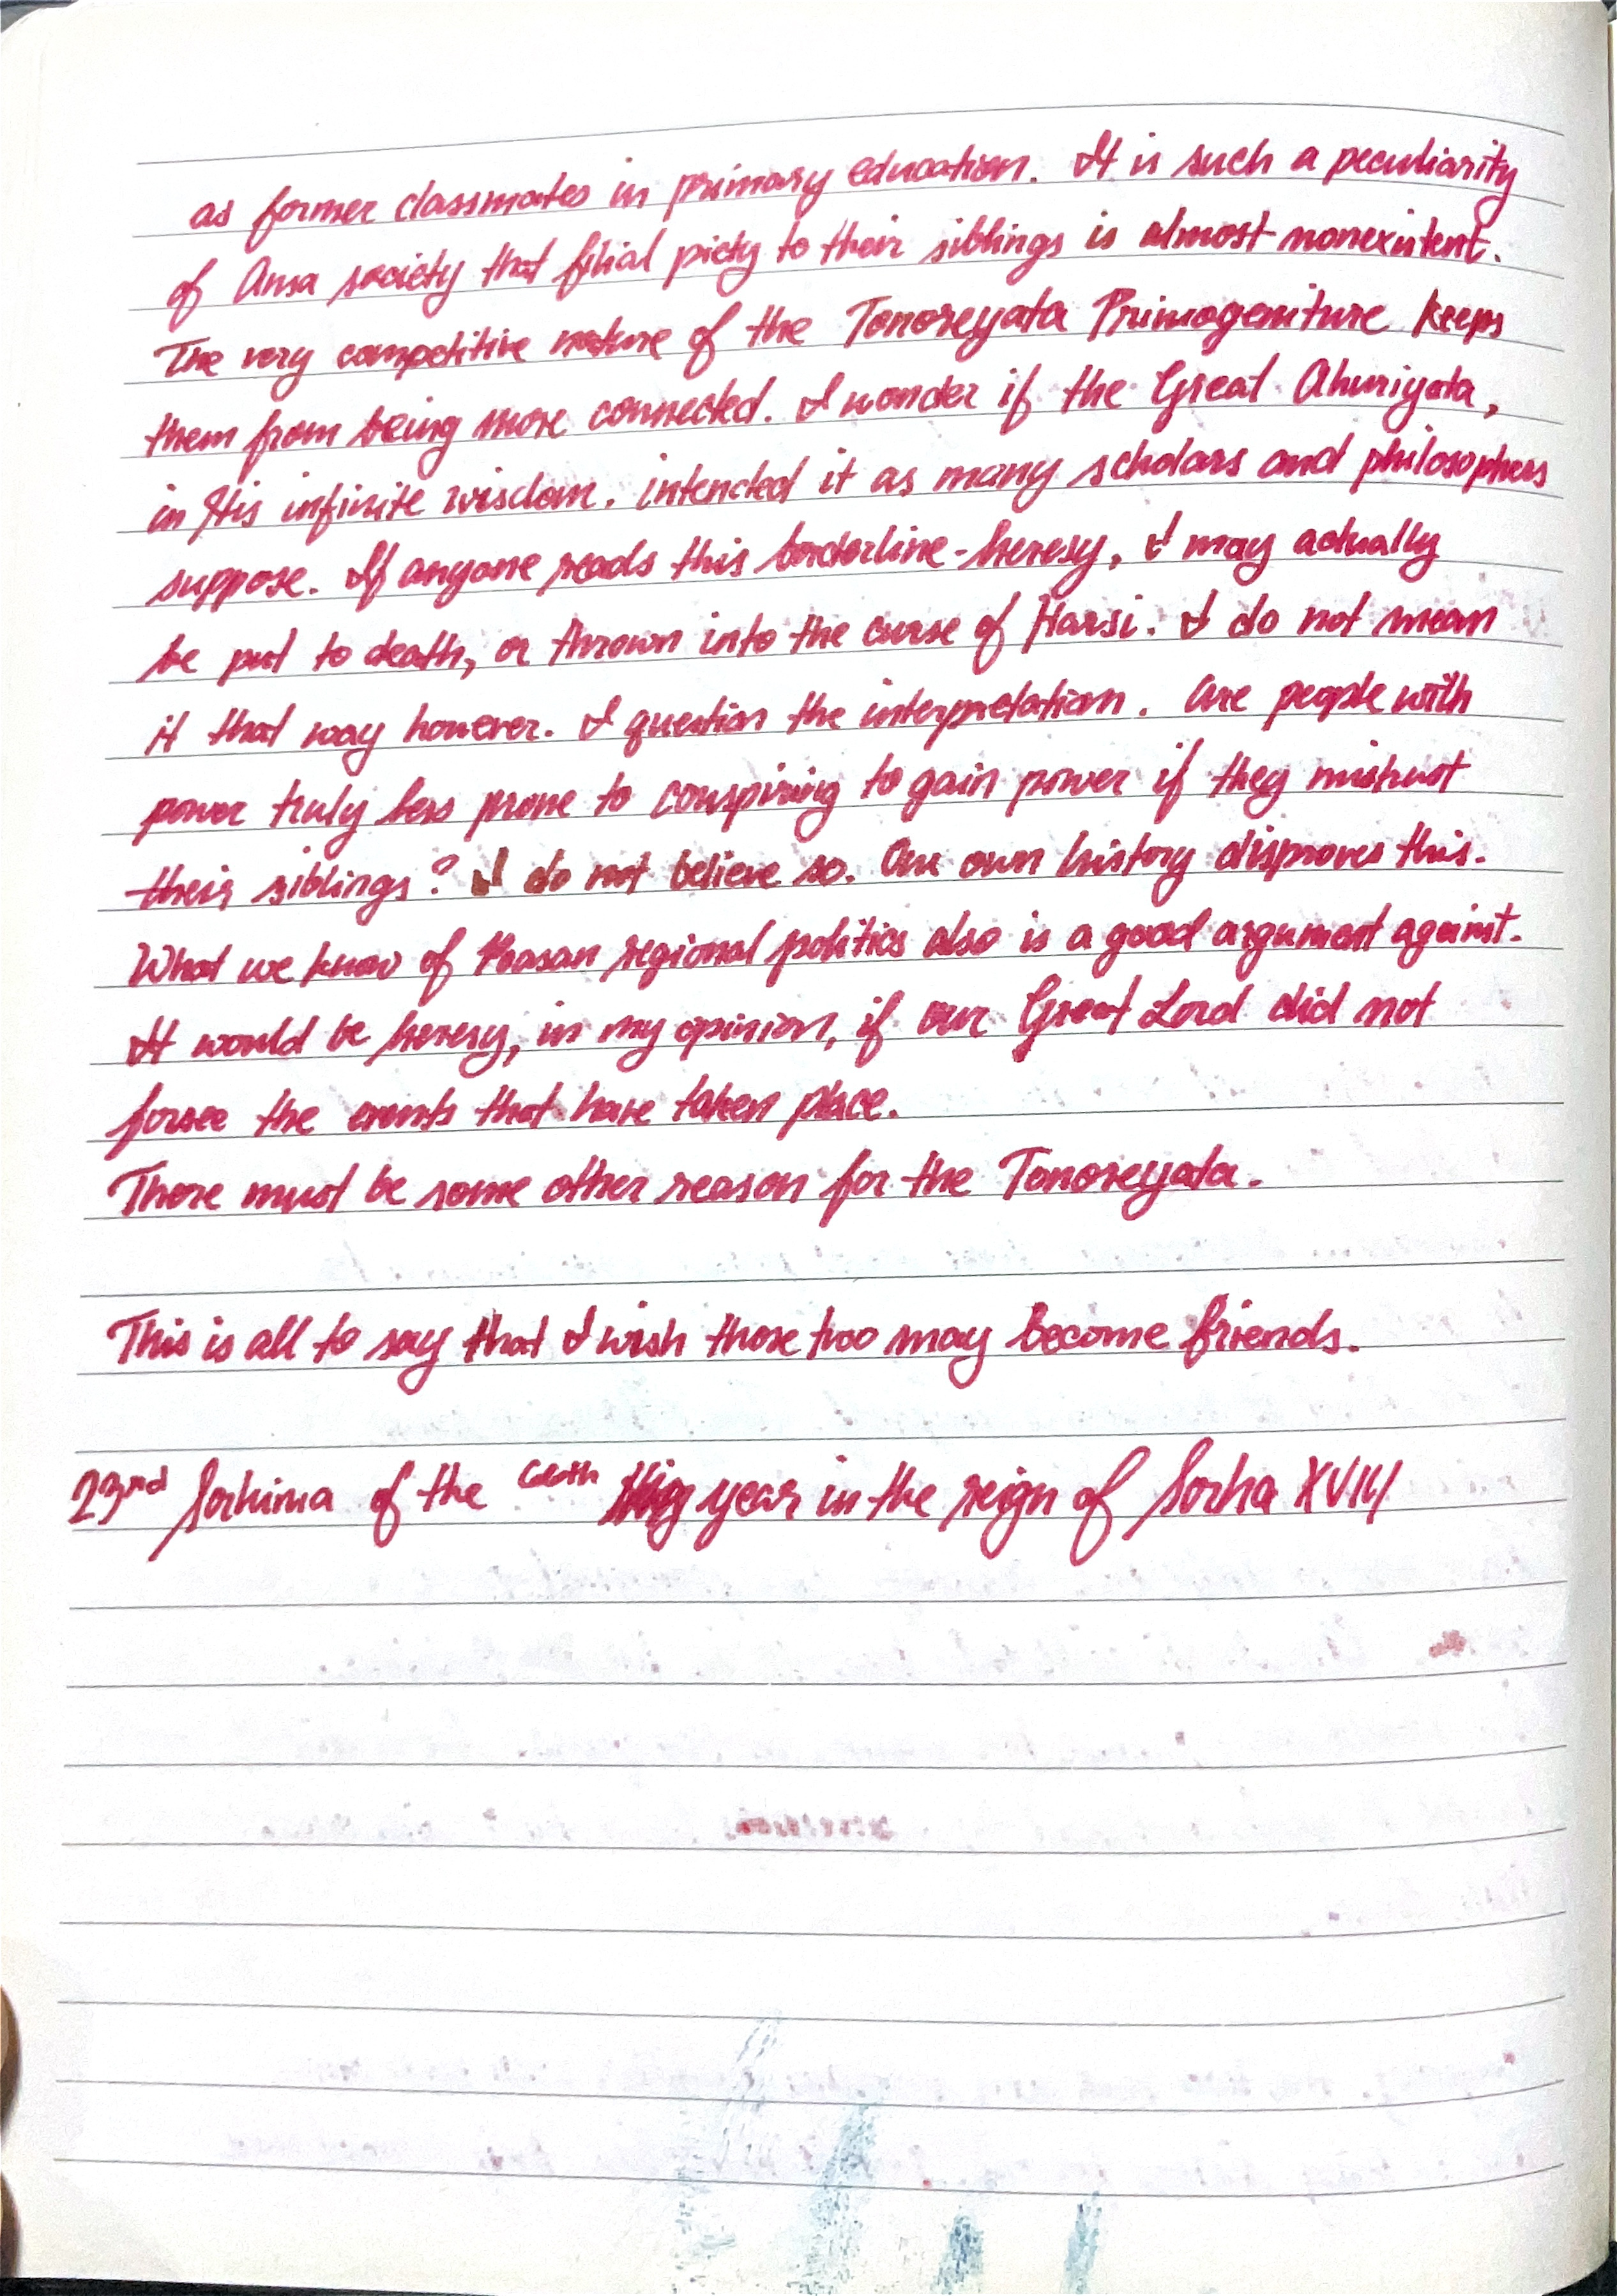 as former classmates in primary education. It is such a peculiarity
of Ama society that filial piety to their siblings is almost nonexistent.
The very competitive nature of the Tonoreyata Primogeniture keeps
them from being more connected. I wonder if the Great Ahuriyata,
in His infinite wisdom, intended it as many scholars and philosophers
suppose. If anyone reads this borderline-heresy, I may actually
be put to death, or thrown into the curse of Harsi. I do not mean
it that way however. I question the interpretation. Are people with
power truly less prone to conspiring to gain power if they mistrust
their siblings? I do not believe so. Our own history disproves this.
What we know of regional politics also is a good argument against.
It would be heresy, in my opinion, if our Great Lord did not
forsee the events that have taken place.
There must be some other reason for the Tonoreyata.
This is all to say that I wish those two may become friends.
23rd of the year in the reign of Sorha XVIII